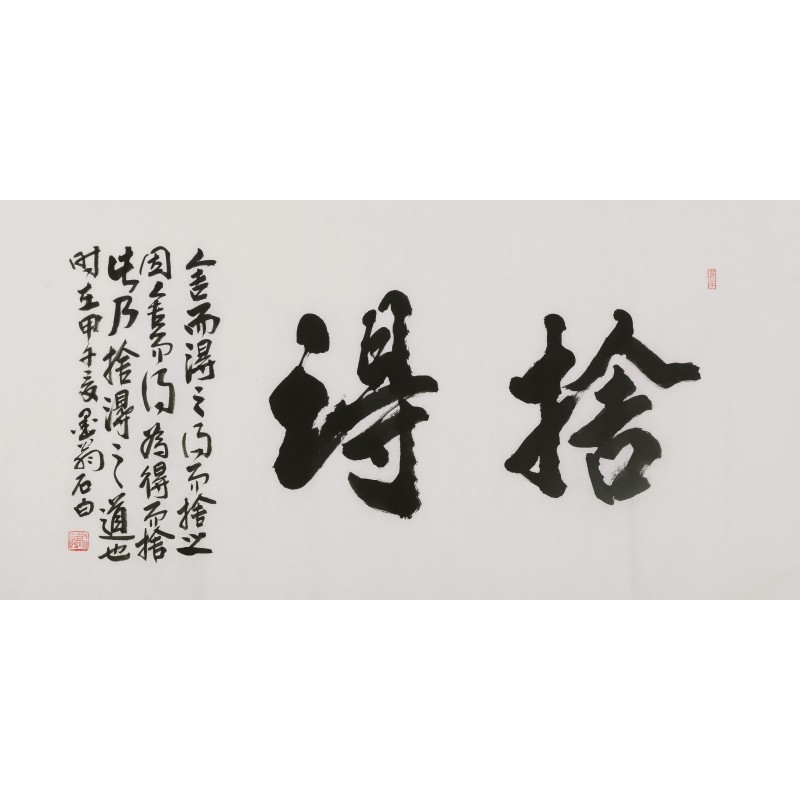 捨得
舍而得之得而捨之
因舍而得為得而捨
此乃捨得之道也
时在甲午夏墨翁石白